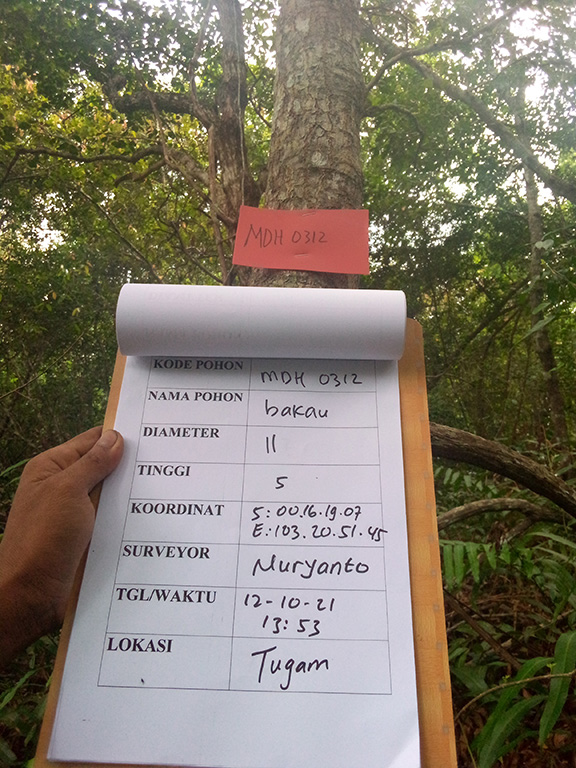 MDH 0312
KODE POHON MDH 0312
NAMA POHON bakau
DIAMETER 11
TINGGI 5
KOORDINAT S: 00.16.19.07
E: 103.20.51.45
SURVEYOR Nuryanto
TGL/WAKTU 12-10-21
13:53
LOKASI Tugam